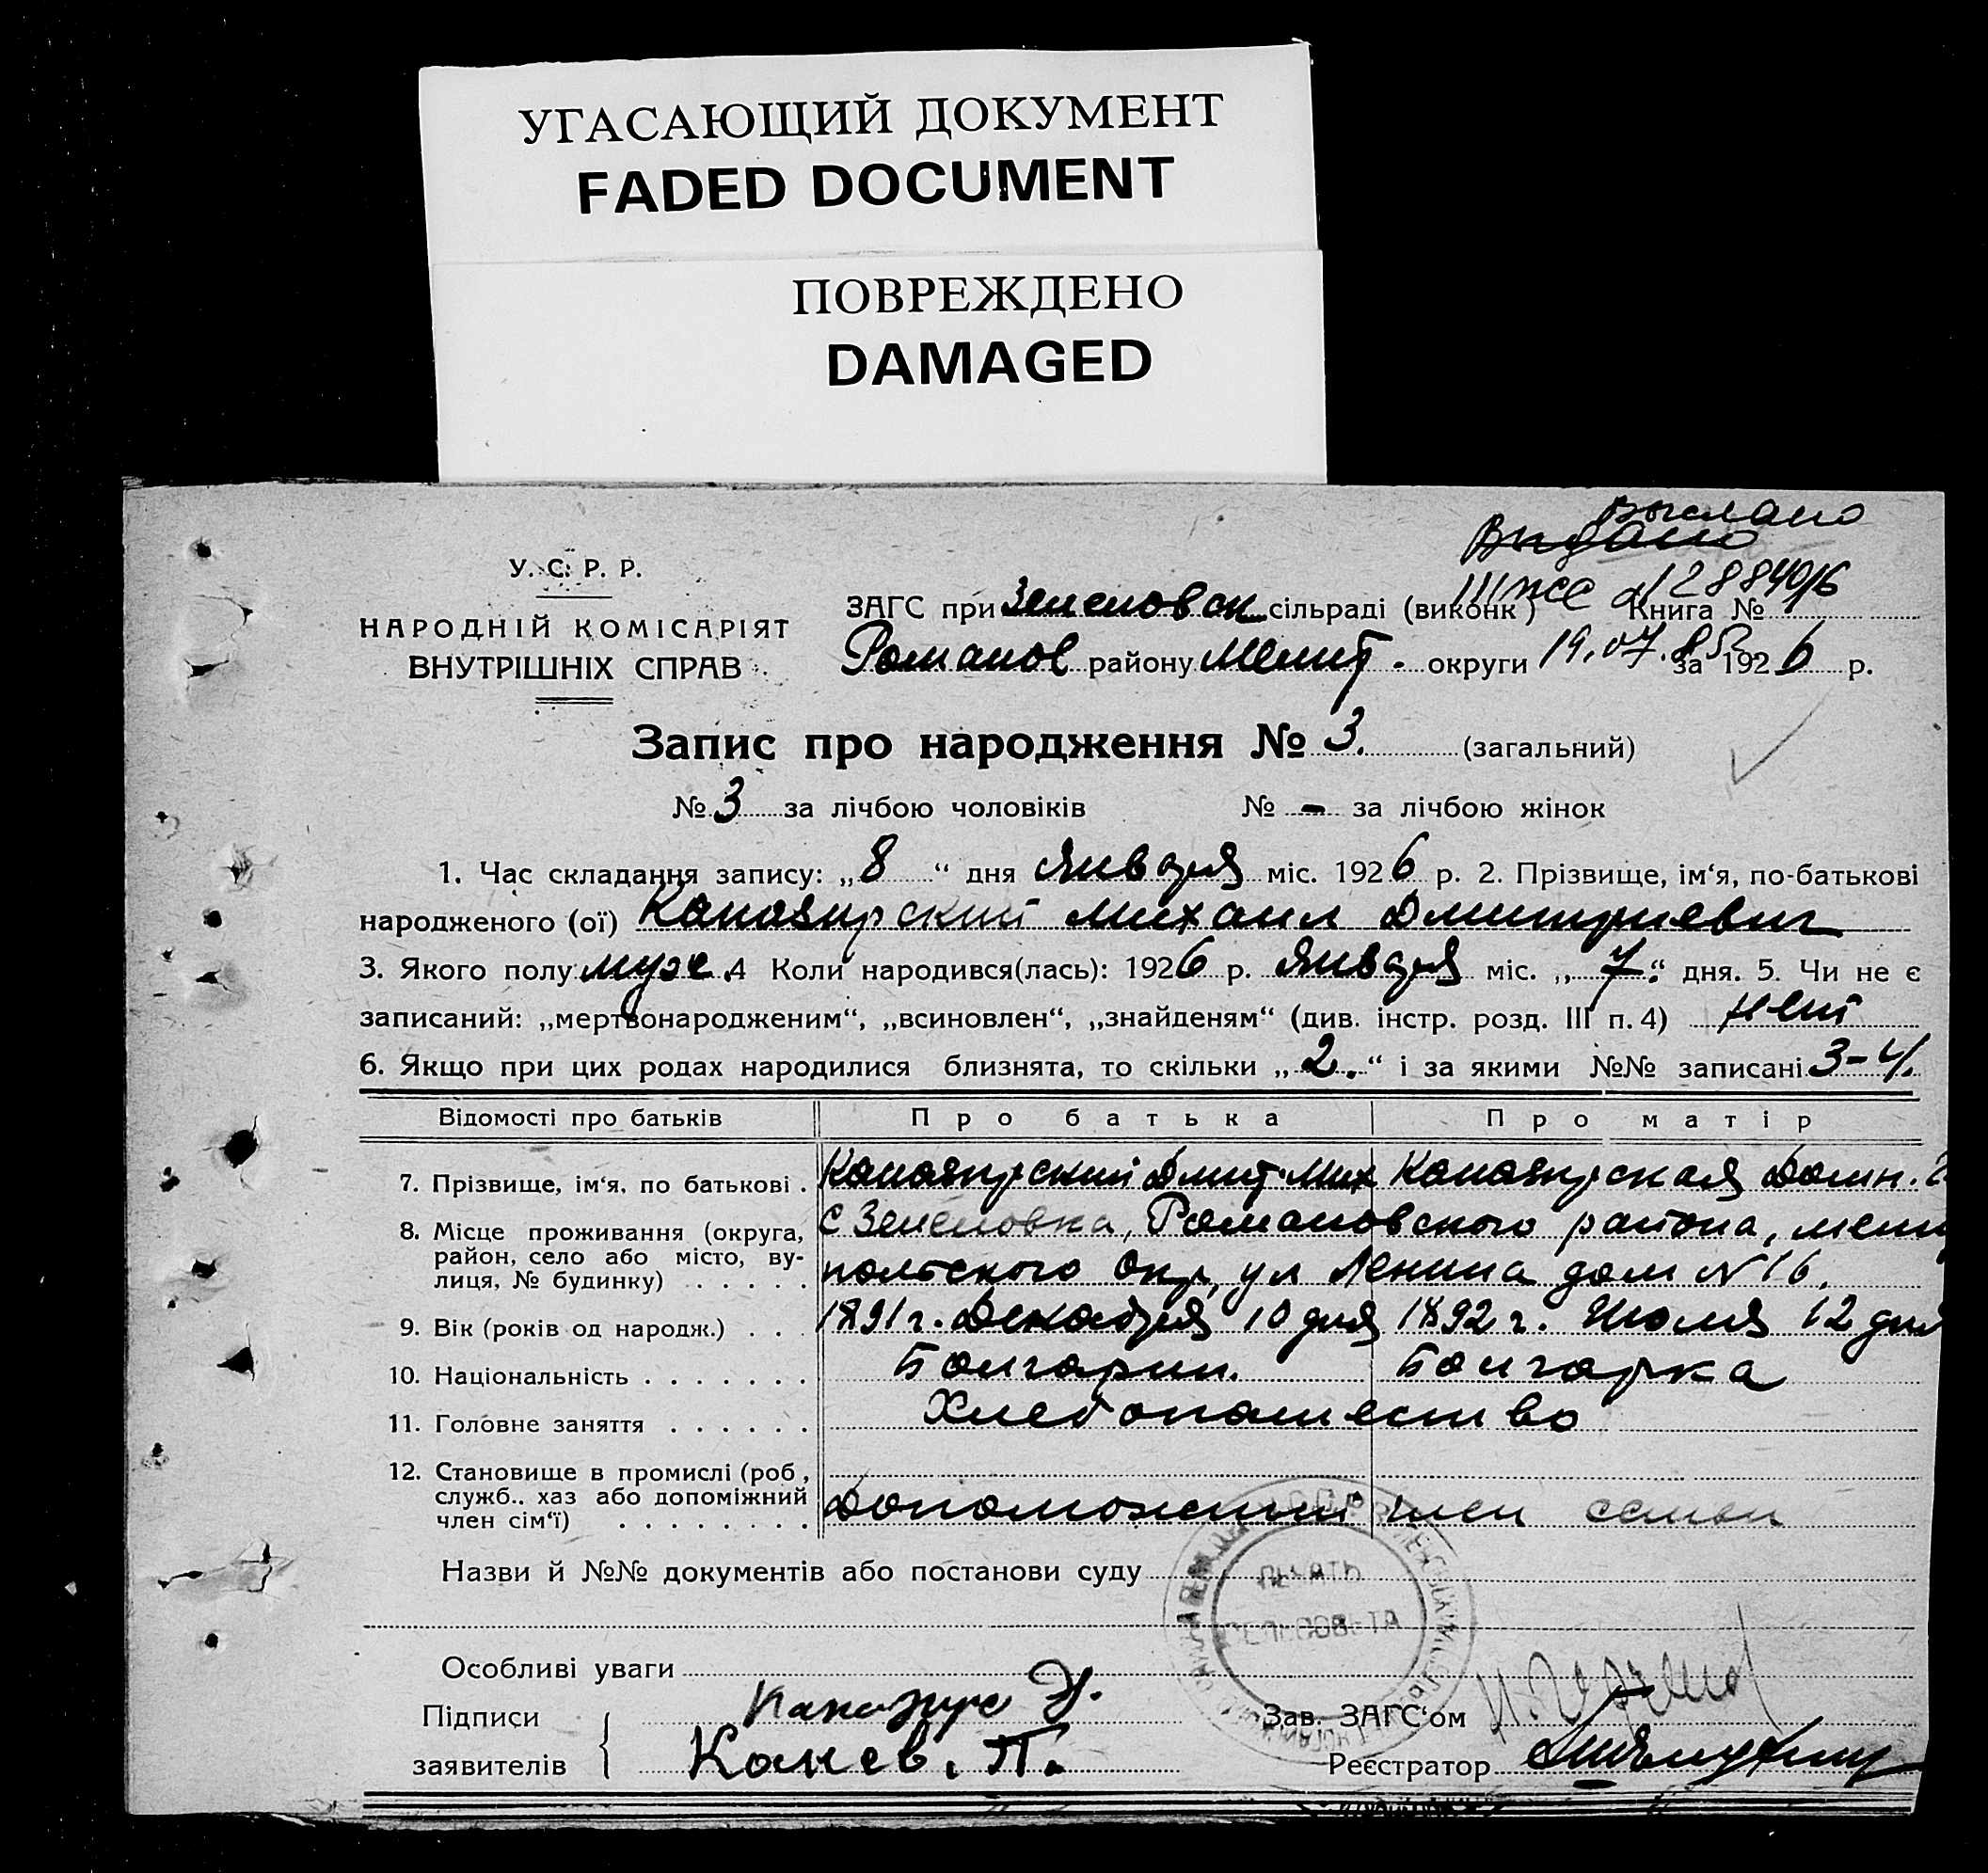 УГАСАЮЩИЙ ДОКУМЕНТ
FADED DOCUMENT
ПОВРЕЖДЕНО
DAMAGED
Выслано
Выдано
У. С. Р. Р.
НАРОДНІЙ КОМІСАРІЯТ
ВНУТРІШНІХ СПРАВ
III ЖС 288840/6
ЗАГС при Зеленовск сільраді (виконк) Книга №
Романов району Мелит. округи 19.07. за 1926 р.
Запис про народження № 3. (загальний)
№ 3 за лічбою чоловіків № - за лічбою жінок
1. Час складання запису: „8“ дня Января міс. 1926 р. 2. Прізвище, ім‘я, по-батькові
народженого (ої) Михаил Дмитриевич
3. Якого полу муж. 4 Коли народився(лась): 1926 р. Января міс. „7“ дня. 5. Чи не є
записаний: „мертвонародженим“, „всиновлен“, „знайденям“ (див. інстр. розд. III п. 4) нет
6. Якщо при цих родах народилися близнята, то скільки „2.“ і за якими №№ записані 3-4.
Відомості про батьків Про батька Про матір
7. Прізвище, ім‘я, по батькові . Дмит. Мих Домн.
8. Місце проживання (округа, с Зеленовка, Романовского района, мелит
район, село або місто, ву-
лиця, № будинку) . . . . . польского Окр, ул Ленина дом № 16.
9. Вік (років од народж.) . . . 1891 г. Декабря 10 дня 1892 г. Июля 12 дня
10. Національність . . . . . . . Болгарин. Болгарка
11. Головне заняття . . . . . . Хлебопашество
12. Становище в промислі (роб,
служб.. хаз або допоміжний
член сім‘ї) . . . . . . . . Допоможный член семьи
Назви й №№ документів або постанови суду
ПЕЧАТЬ
СЕЛЬСОВЕТА
Особливі уваги
Підписи
заявителів Канев. П.
Зав. ЗАГС‘ом
Реєстратор